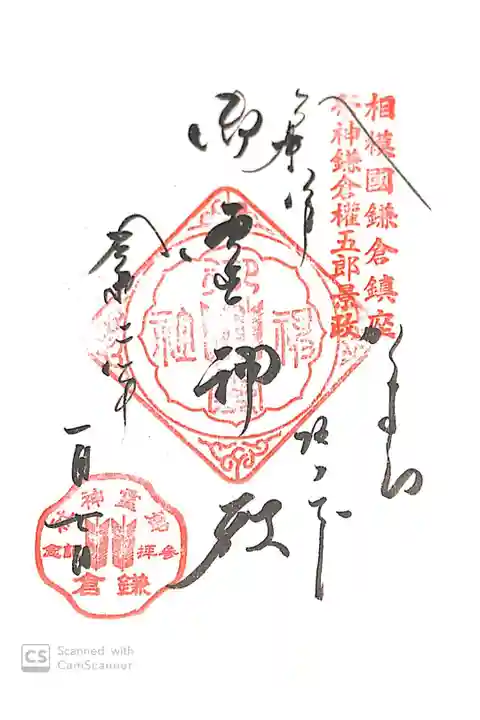 相模國鎌倉鎮座
祭神鎌倉權五郎景政
かまくら
坂ノ下
奉拝
御霊神社
令和二年
一月七日
御霊神社
参拝記念
鎌倉
CS Scanned with
CamScanner